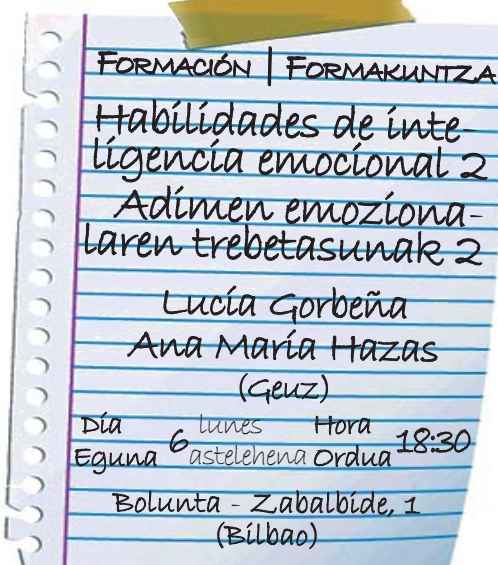 FORMACIÓN | FORMAKUNTZA
Habilidades de inte-
ligencia emocional 2
Adimen emoziona-
laren trebetasunak 2
Lucía Gorbeña
Ana María Hazas
(Geuz)
Día 6 lunes Hora 18:30
Eguna astelehena Ordua
Bolunta - Zabalbide, 1
(Bilbao)